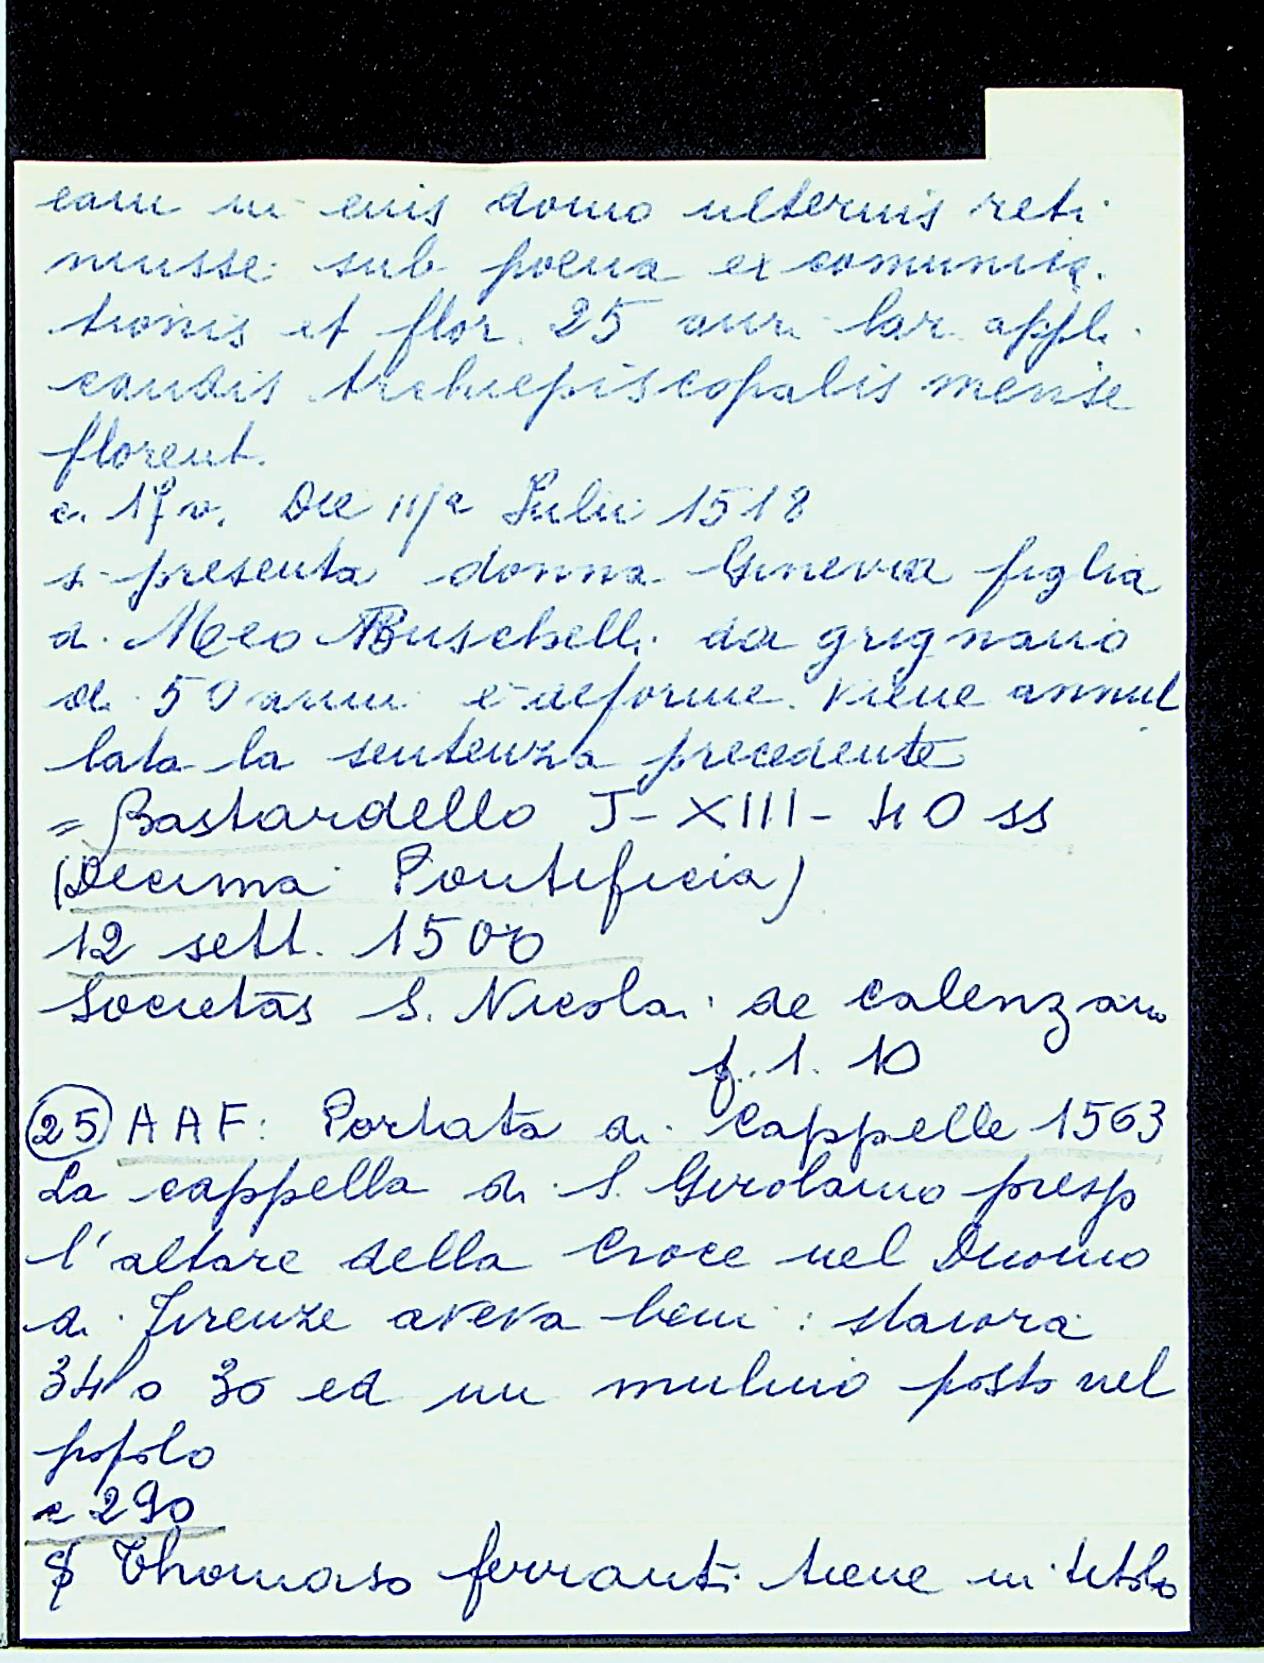 eam in eius domo ulterius reti
nuisse sub poena excomunica
tionis et flor. 25 auri lar. appli
candis Archiepiscopalis mense
florent.
c. 17 v. Die Julii 1518
si presenta donna Ginevra figlia
di Meo Buschelli da grignano
di 50 anni e deforme. Viene annul
lata la sentenza precedente
= Bastardello J-XIII-40 ss
(Decima Pontificia)
12 sett. 1500
Societas S. Nicolai de Calenzano
f. 1. 10
(25) AAF: Portata di Cappelle 1563
La cappella di S. Girolamo presso
l'altare della Croce nel Duomo
di Firenze aveva beni: staiora
34 o 30 ed un mulino posto nel
popolo
c 290
Thomaso ferranti tiene in titolo